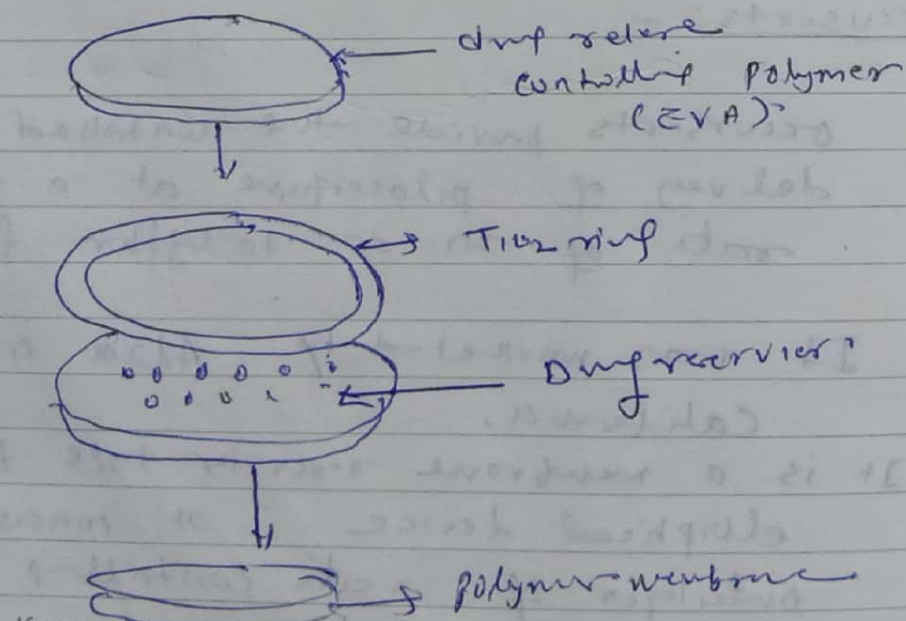 drug relese
controlling polymer
(EVA):
TiO2 ring
Drug reservier:
polymer membrane